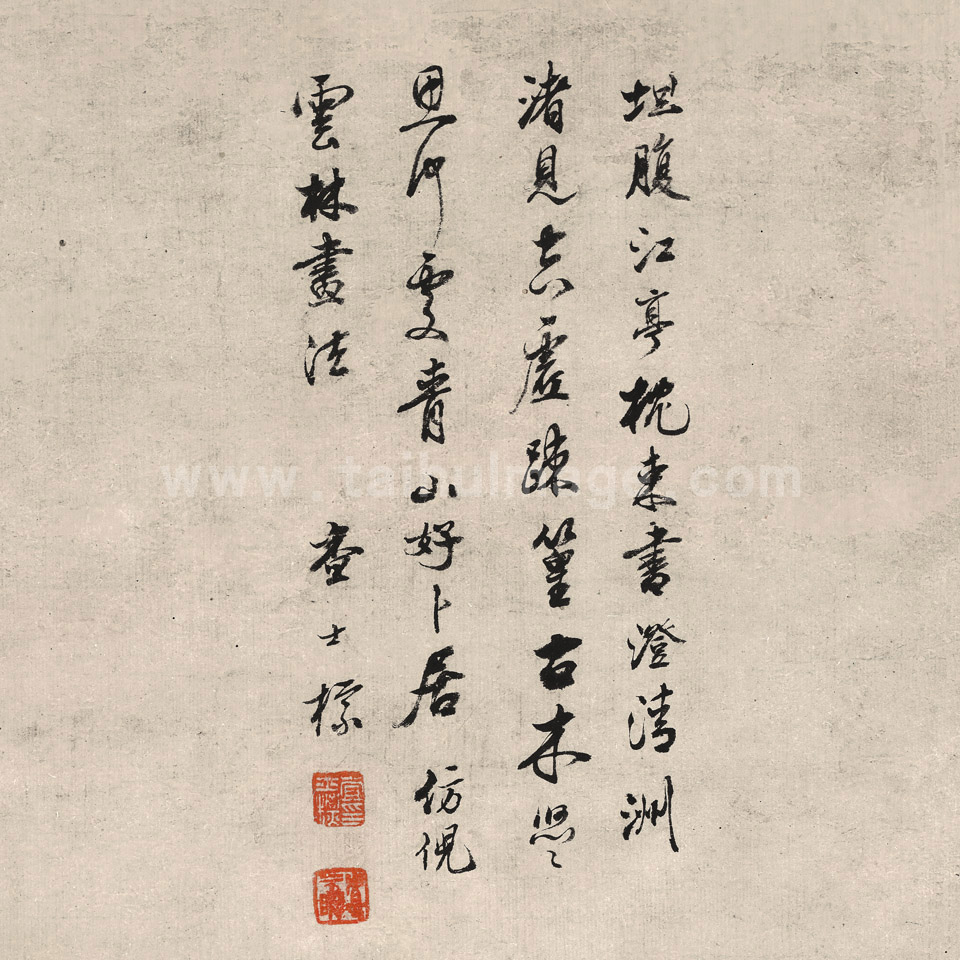 坦腹江亭枕束書澄清洲
渚見虛踈篁古木悠〻
思何處青山好卜居 仿倪
雲林畫法 查士標